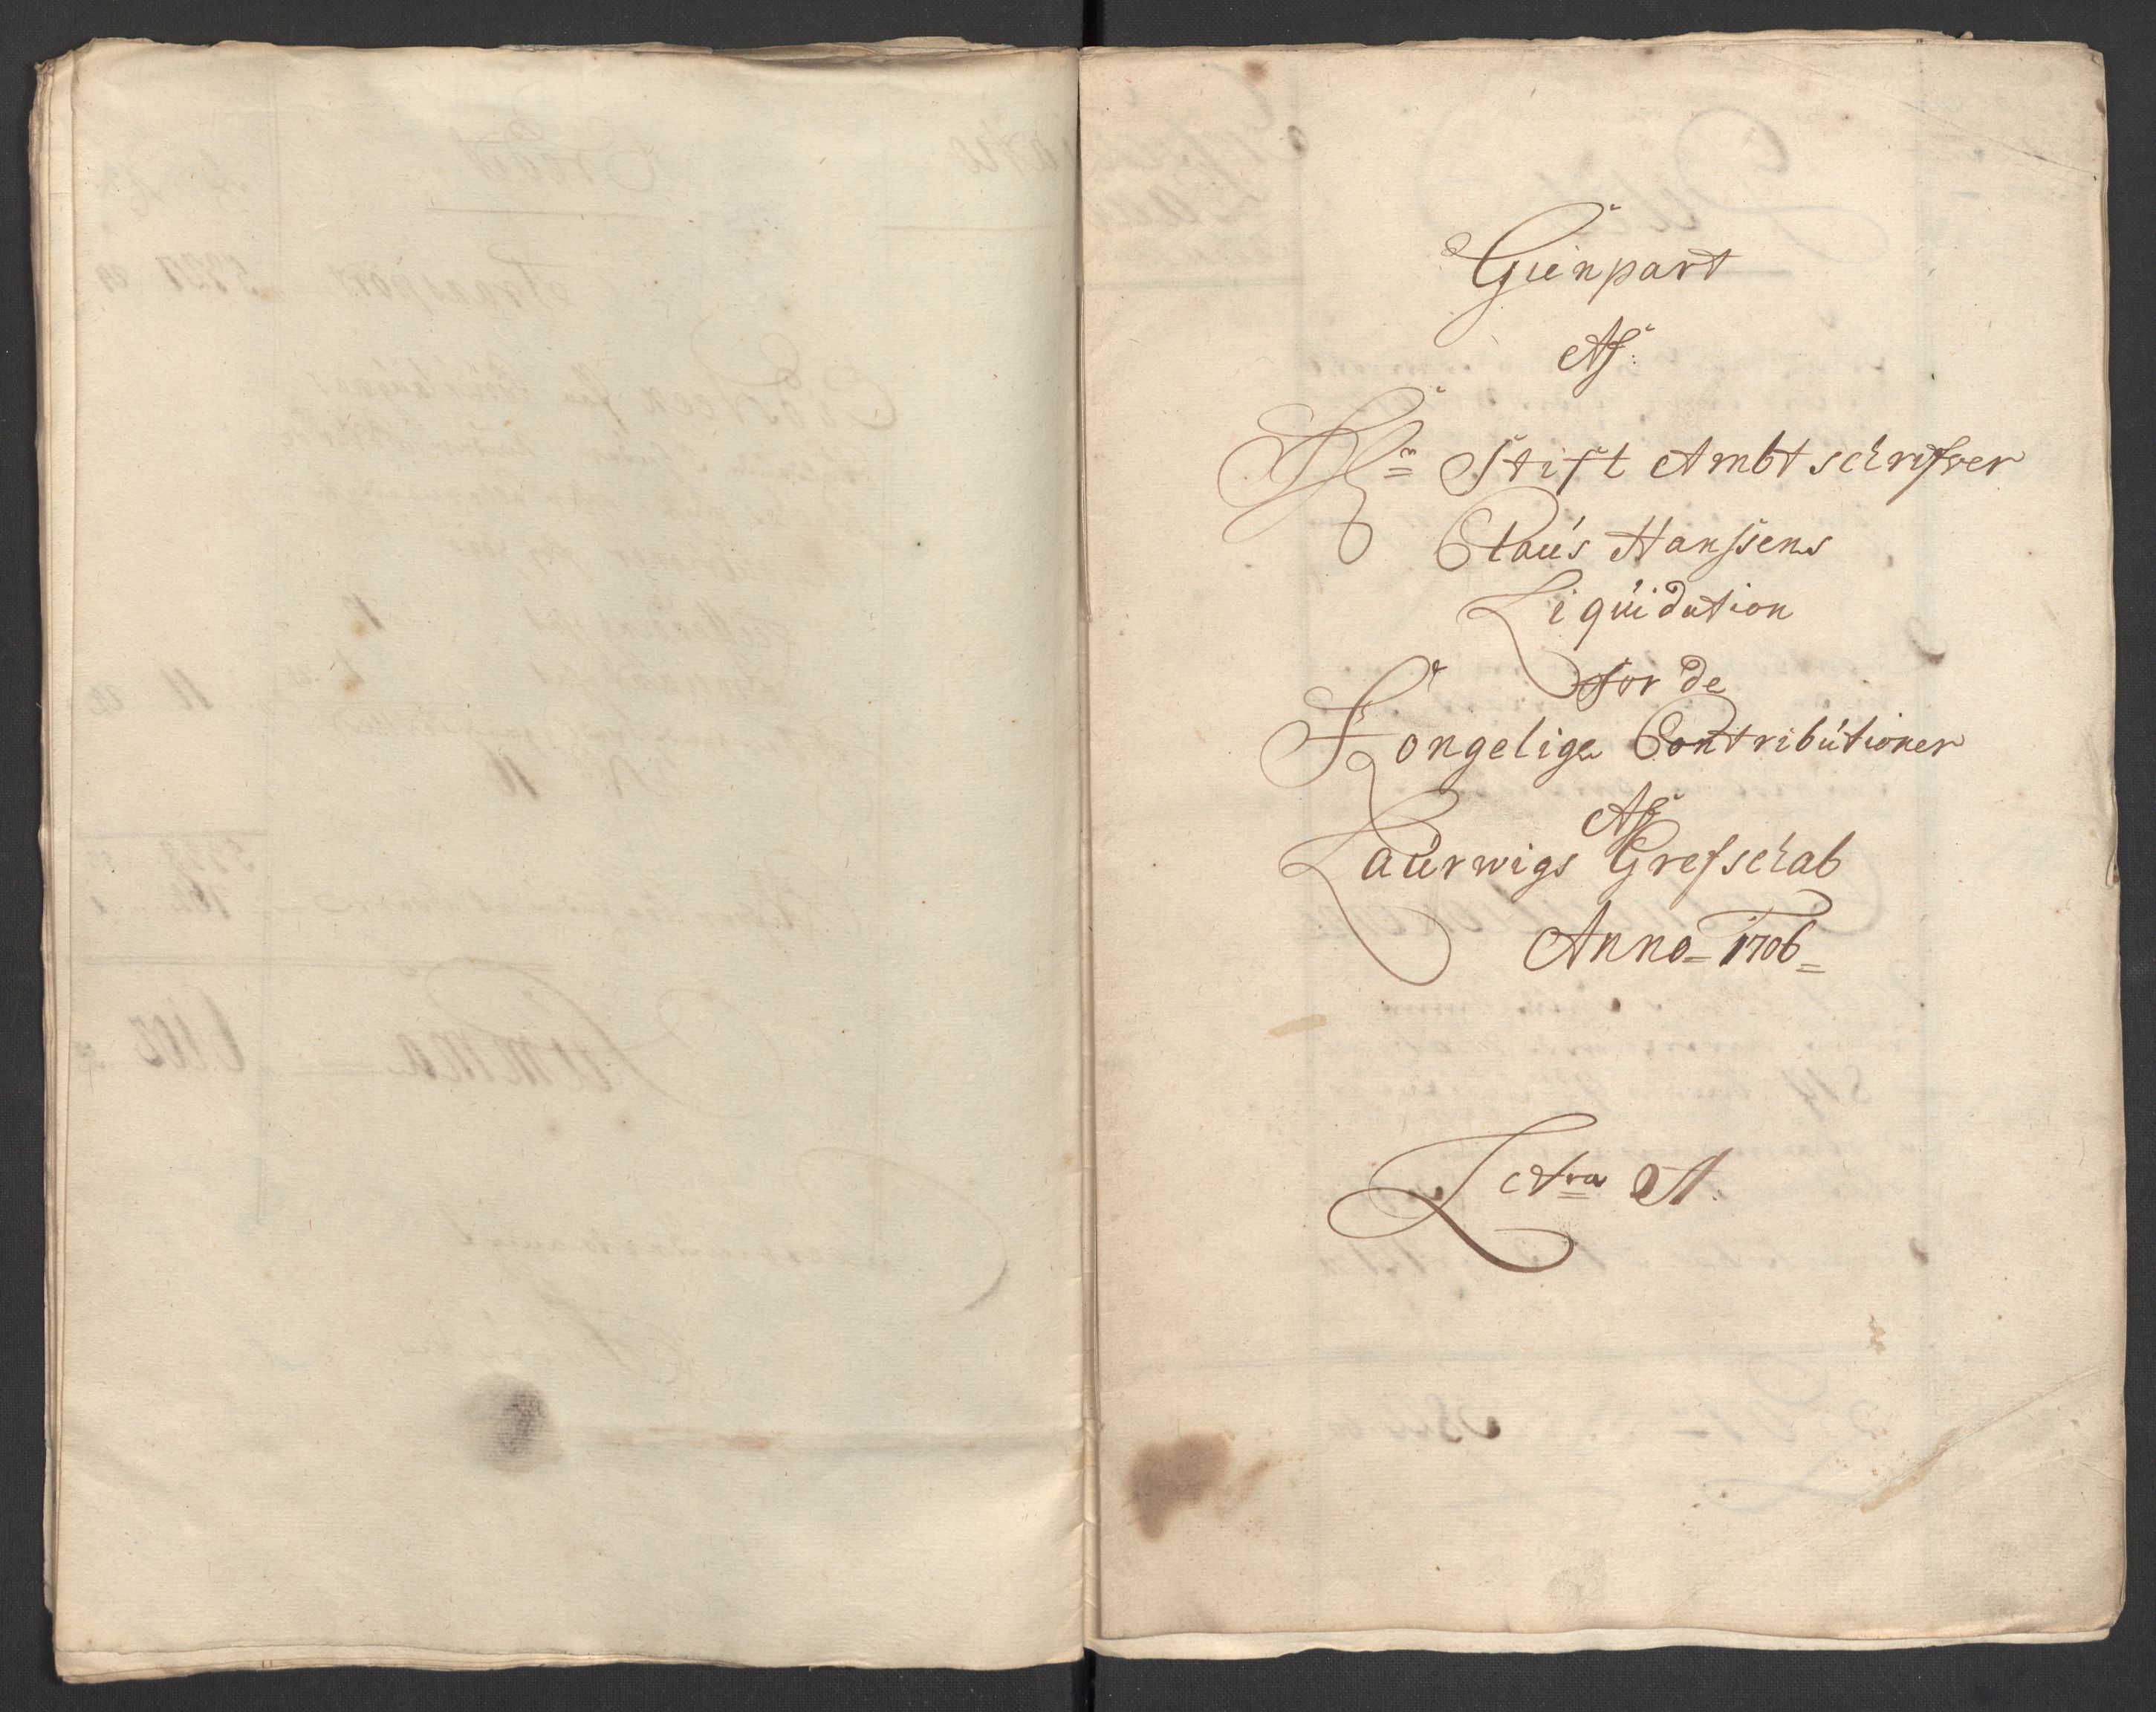 Gienpart
Af
Hr Stift Ambtschrifver
Claus Hanssens
Liqvidation
for de
Kongelige Contributioner
Af
Laurwigs Grefschab
Anno 1706
Litra A: